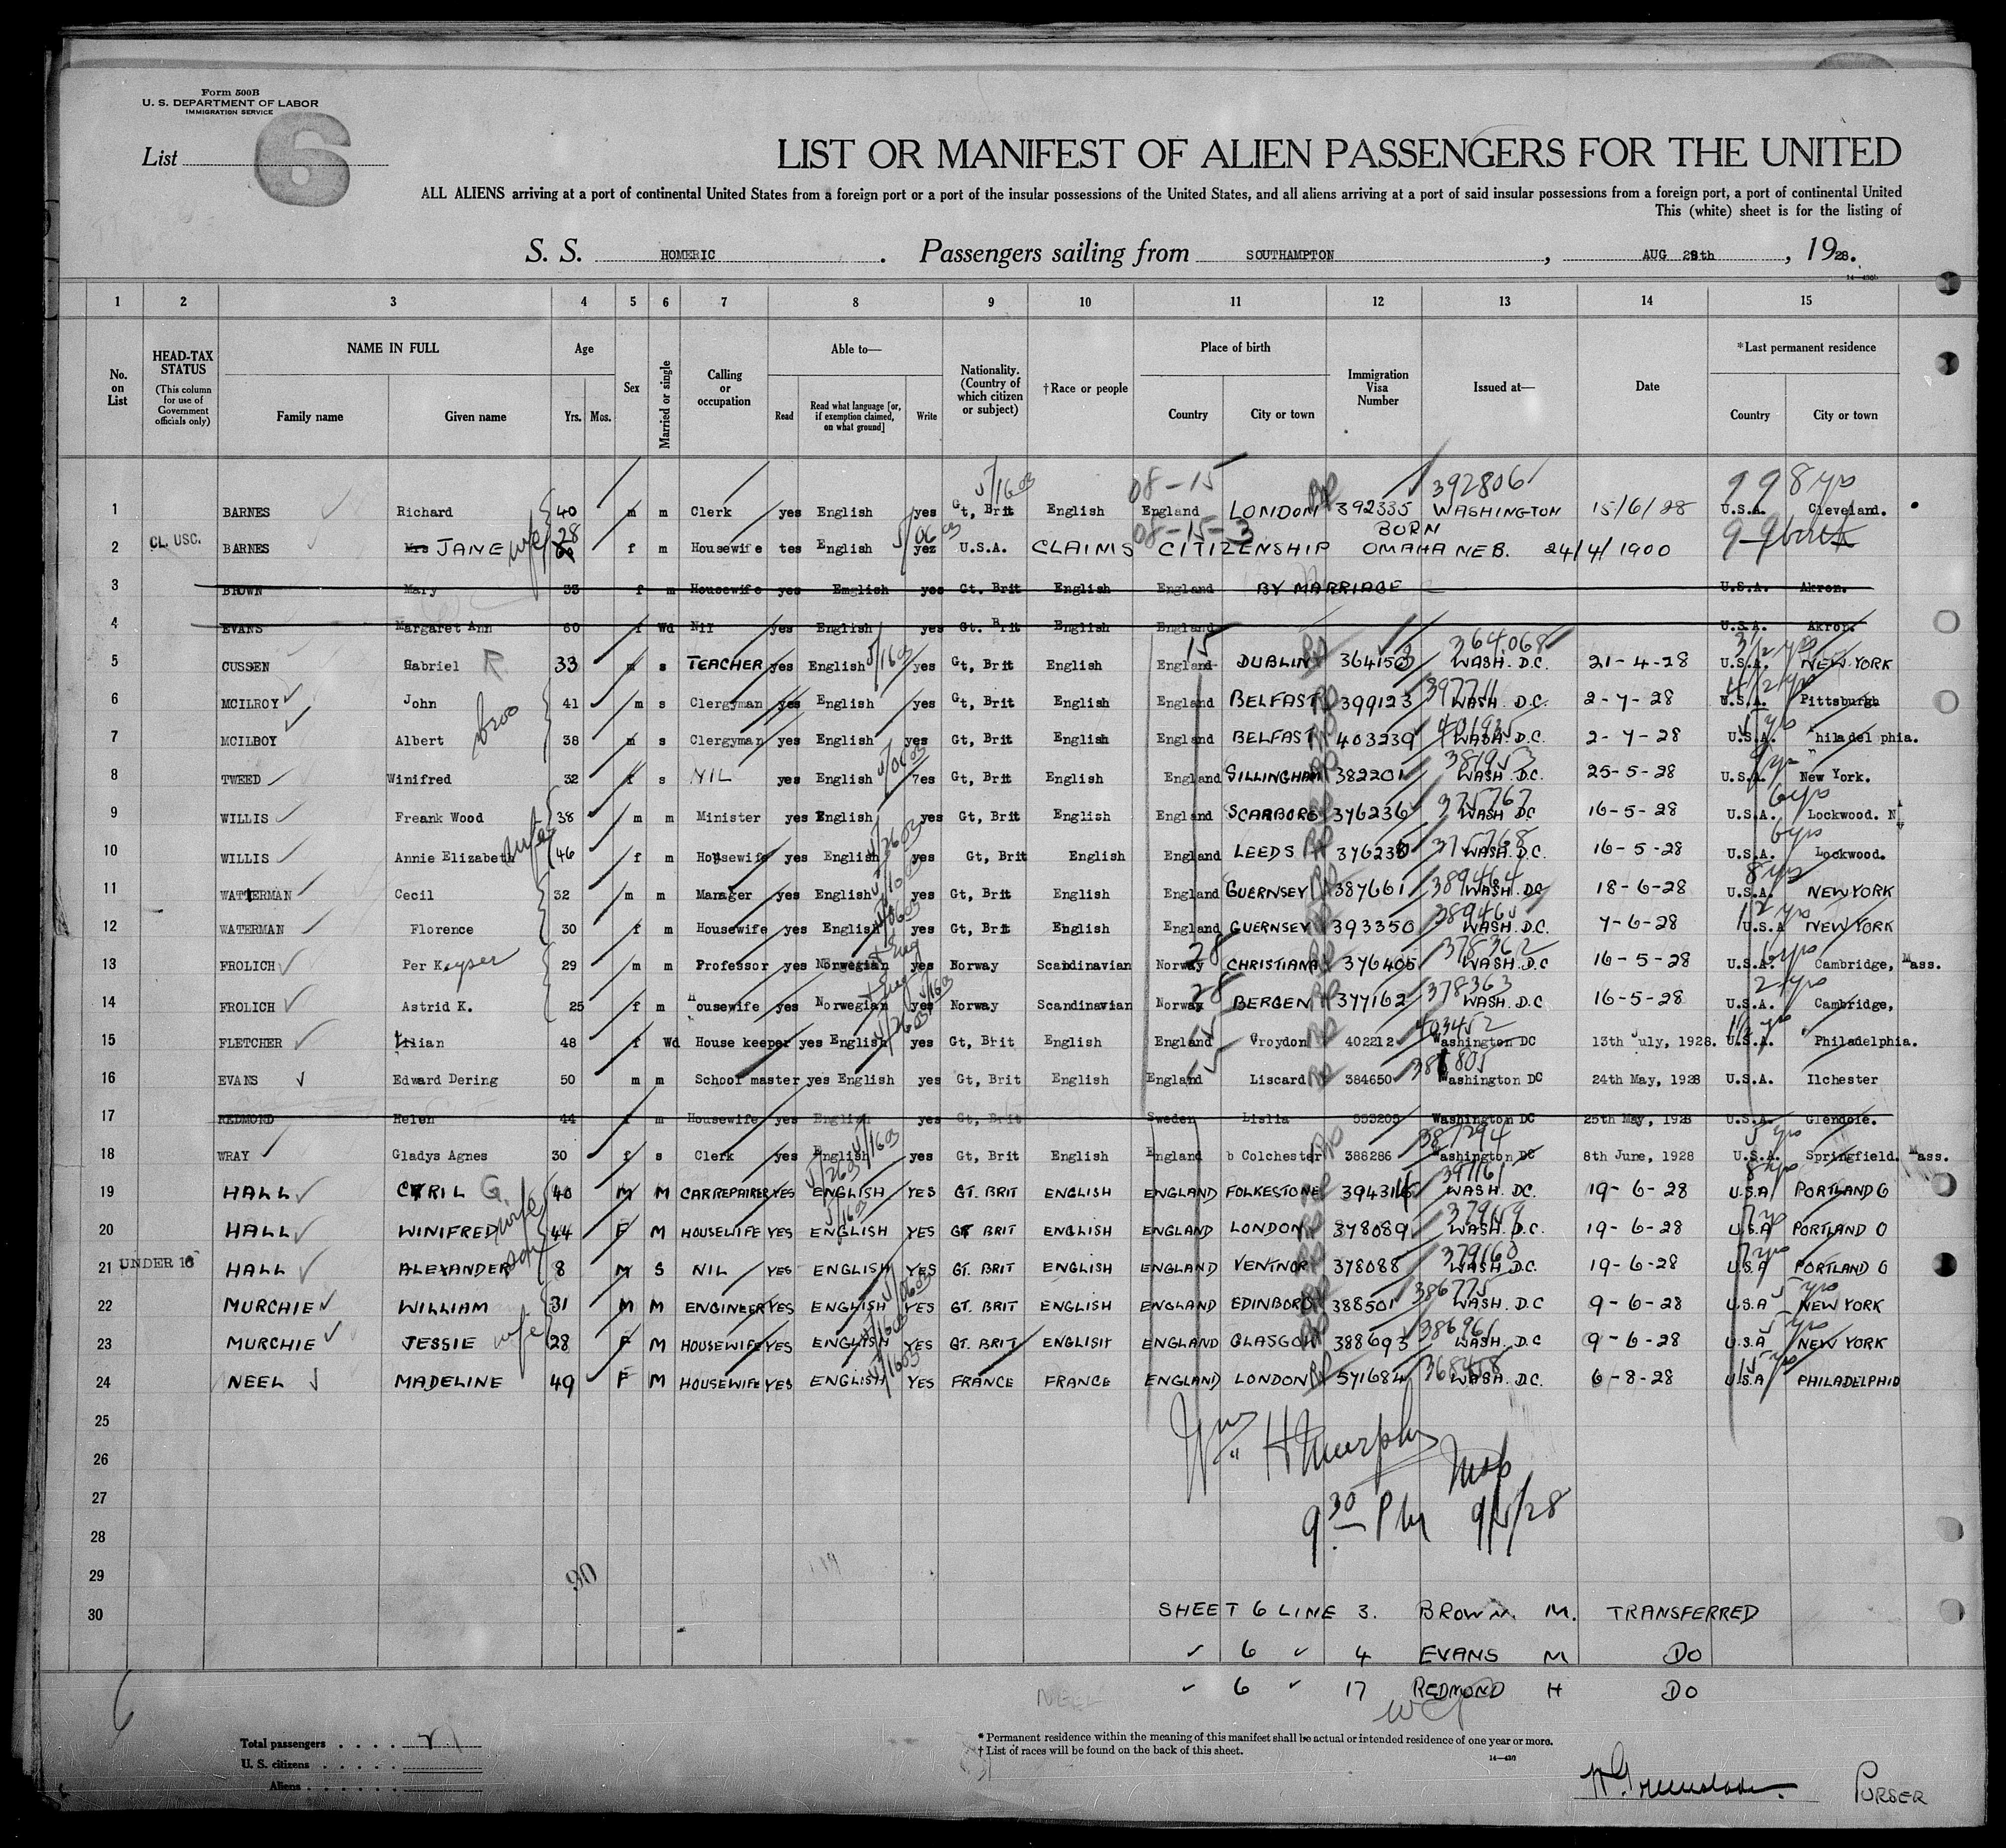 Form 500B
U. S. DEPARTMENT OF LABOR
IMMIGRATION SERVICE
List 6
LIST OR MANIFEST OF ALIEN PASSENGERS FOR THE UNITED
ALL ALIENS arriving at a port of continental United States from a foreign port or a port of the insular possessions of the United States, and all aliens arriving at a port of said insular possessions from a foreign port, a port of continental United
This (white) sheet is for the listing of
S. S. HOMERIC. Passengers sailing from SOUTHAMPTON, AUG 29th, 1928.
14—430b
1 2 3 4 5 6 7 8 9 10 11 12 13 14 15
No. on List
HEAD-TAX STATUS (This column for use of Government officials only)
NAME IN FULL Family name Given name
Age Yrs. Mos.
Sex
Married or single
Calling or occupation
Able to— Read Read what language [or, if exemption claimed, on what ground] Write
Nationality. (Country of which citizen or subject)
†Race or people
Place of birth Country City or town
Immigration Visa Number
Issued at—
Date
*Last permanent residence Country City or town
08-15 392806 8 yrs
1 BARNES Richard 40 m m Clerk yes English yes Gt, Brit English England LONDON 392335 WASHINGTON 15/6/28 U.S.A. Cleveland.
08-15-3 BORN
2 CL. USC. BARNES Mrs JANE wife 28 f m Housewife tes English yez U.S.A. CLAIMS CITIZENSHIP OMAHA NEB. 24/4/1900
3 BROWN Mary 33 f m Housewife yes Emglish yes Gt. Brit English England BY MARRIAGE U.S.A. Akron.
4 EVANS Margaret Ann 60 f Wd Nil yes English yes Gt. Brit English England U.S.A. Akron.
15 364,068
5 CUSSEN Gabriel R 33 m s TEACHER yes English yes Gt, Brit English England DUBLIN 364150 WASH. D.C. 21-4-28 U.S.A. NEW YORK
397711
6 MCILROY John 41 m s Clergyman yes English yes Gt, Brit English England BELFAST 399123 WASH. D.C. 2-7-28 U.S.A. Pittsburgh
7 MCILBOY Albert 38 m s Clergyman yes English yes Gt, Brit English England BELFAST 403239 WASH. D.C. 2-7-28 U.S.A. hiladelphia.
8 TWEED Winifred 32 f s NIL yes English 7es Gt, Brit English England GILLINGHAM 382201 WASH. D.C. 25-5-28 U.S.A. New York.
375767 6 yrs
9 WILLIS Freank Wood 38 m m Minister yes English yes Gt, Brit English England SCARBORO 376236 WASH DC 16-5-28 U.S.A. Lockwood. N
375768 6 yrs
10 WILLIS Annie Elizabeth wife 46 f m Housewife yes English yes Gt, Brit English England LEEDS WASH. D.C. 16-5-28 U.S.A. Lockwood.
389464 8 yrs
11 WATTERMAN Cecil 32 m m Manager yes English yes Gt, Brit English England GUERNSEY 387661 WASH. DC 18-6-28 U.S.A. NEW YORK
12 WATERMAN Florence 30 f m Housewife yes English yes Gt, Brit English England GUERNSEY 393350 WASH. D.C. 7-6-28 U.S.A NEW YORK
28 378362
13 FROLICH Per Keyser 29 m m Professor yes Norwegian yes Norway Scandinavian Norway CHRISTIANA 376405 WASH. D.C 16-5-28 U.S.A. Cambridge, Mass.
28 378363
14 FROLICH Astrid K. 25 f m Housewife yes Norwegian yes Norway Scandinavian Norway BERGEN 377162 WASH. D.C 16-5-28 U.S.A. Cambridge,
15 403452
15 FLETCHER Lilian 48 f Wd House keeper yes English yes Gt, Brit English England Croydon 402212 Washington DC 13th July, 1928. U.S.A. Philadelphia.
15
16 EVANS Edward Dering 50 m m School master yes English yes Gt, Brit English England Liscard 384650 Washington DC 24th May, 1928 U.S.A. Ilchester
17 REDMOND Helen 44 f m Housewife yes English yes Gt, Brit Sweden Lislia 553205 Washington DC 25th May, 1928 U.S.A. Glencoie.
387294 5 yrs
18 WRAY Gladys Agnes 30 f s Clerk yes English yes Gt, Brit English England b Colchester 386286 Washington DC 8th June, 1928 U.S.A. Springfield. Mass.
8 yrs
19 HALL CYRIL G. 40 M M CAR REPAIRER YES ENGLISH YES GT. BRIT ENGLISH ENGLAND FOLKESTONE WASH. DC. 19-6-28 U.S.A PORTLAND O
20 HALL WINIFRED wife 44 F M HOUSEWIFE YES ENGLISH YES GT BRIT ENGLISH ENGLAND LONDON 378089 WASH. D.C. 19-6-28 U.S.A PORTLAND O
379160 7 yrs
21 UNDER 16 HALL ALEXANDER son 8 M S NIL YES ENGLISH YES GT. BRIT ENGLISH ENGLAND VENTNOR 378088 WASH. D.C. 19-6-28 U.S.A PORTLAND O
386775 5 yrs
22 MURCHIE WILLIAM 31 M M ENGINEER YES ENGLISH YES GT. BRIT ENGLISH ENGLAND EDINBORO 388501 WASH. D.C 9-6-28 U.S.A NEW YORK
386961 5 yrs
23 MURCHIE JESSIE wife 28 F M HOUSEWIFE YES ENGLISH YES GT. BRIT ENGLISH ENGLAND GLASGOW 388693 WASH. D.C 9-6-28 U.S.A NEW YORK
24 NEEL MADELINE 49 F M HOUSEWIFE YES ENGLISH YES FRANCE FRANCE ENGLAND LONDON 571684 WASH. D.C. 6-8-28 U.S.A PHILADELPHIA
25
26 Wm H Murphy
27
28 9 30 PM 9/5/28
29 90
30 SHEET 6 LINE 3. BROWN. M. TRANSFERRED
6 4 EVANS M DO
NEEL 6 17 REDMOND H DO
Total passengers . . . .
U. S. citizens . . . . .
Aliens . . . . . .
* Permanent residence within the meaning of this manifest shall be actual or intended residence of one year or more.
† List of races will be found on the back of this sheet.
14—430
PURSER